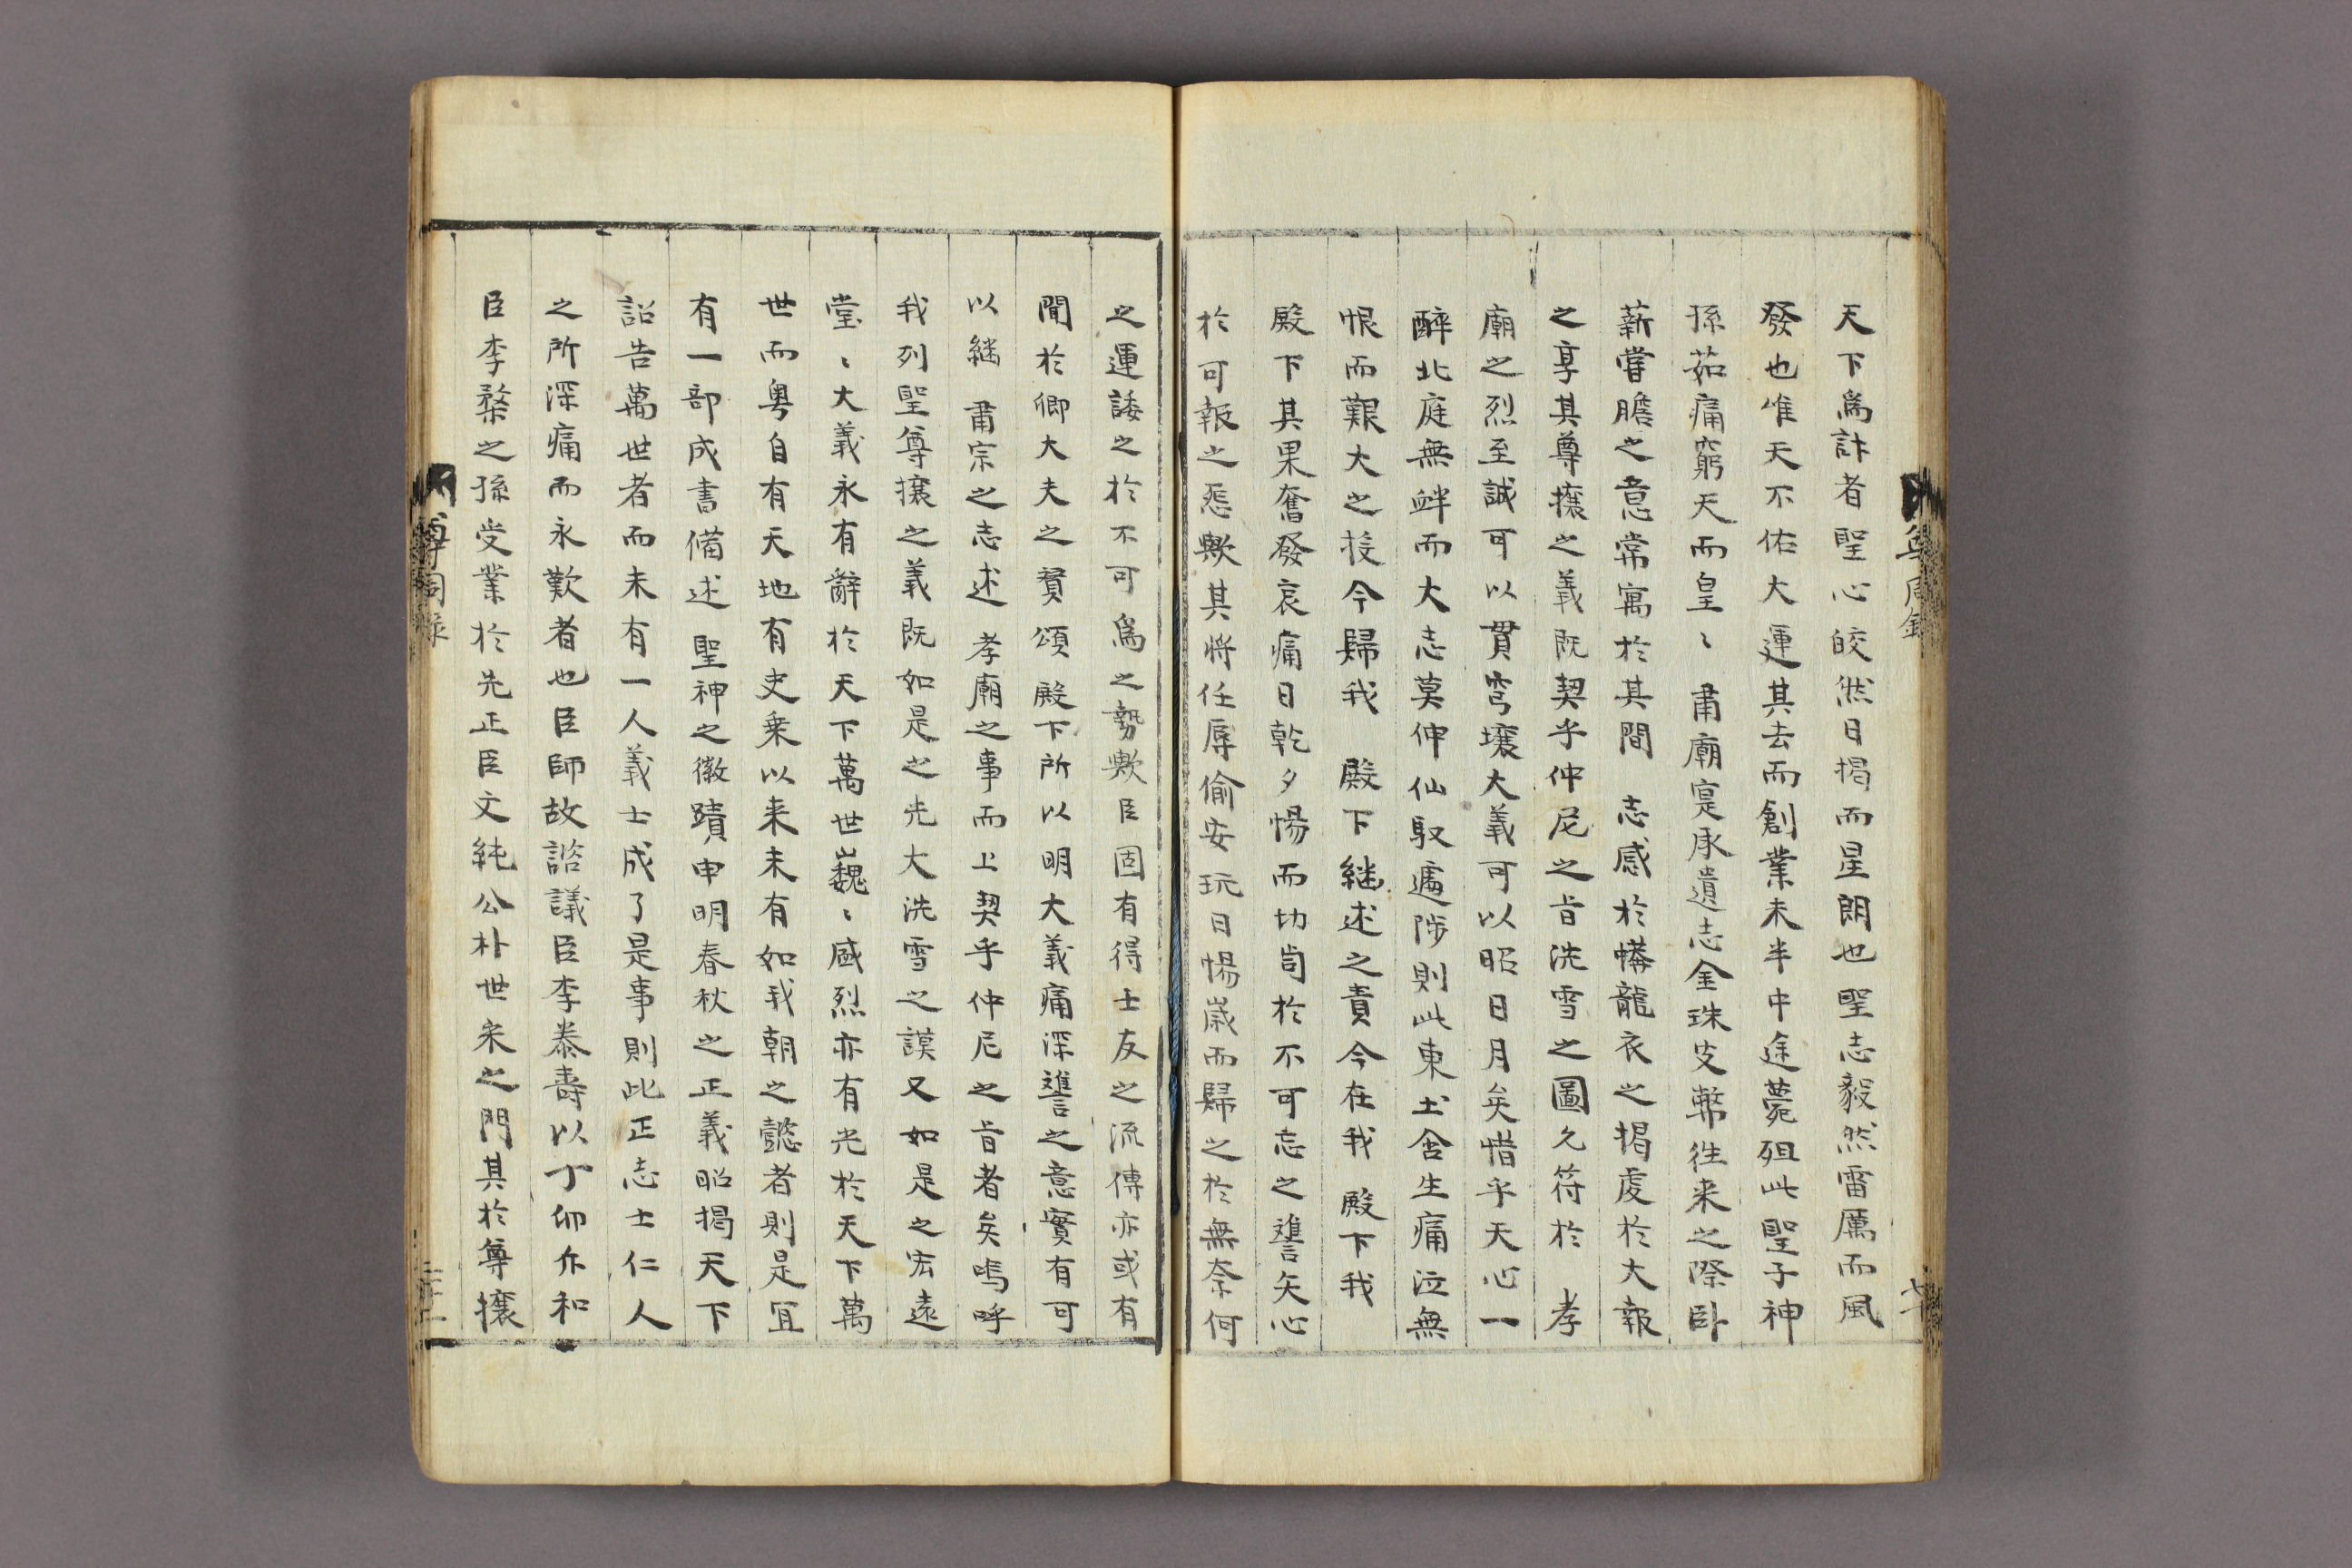 天下爲訃者聖心皎然日揭而星朗也聖志毅然雷厲而風
發也惟天不佑大運其去而創業未半中途薨殂此聖子神
孫茹痛窮天而皇〻 肅廟寔承遺志金珠皮幣徃来之際臥
薪嘗膽之意常寓於其間 志感於幬龍衣之揭虔於大報
之享其尊攘之義旣契乎仲尼之旨洗雪之圖允符於 孝
廟之烈至誠可以貫穹壤大義可以昭日月矣惜乎天心一
醉北庭無衅而大志莫伸仙馭遽陟則此東土含生痛泣無
恨而艱大之投今歸我 殿下継述之責今在我 殿下我
殿下其果奮發哀痛日乾夕惕而切訽於不可忘之讐矢心
於可報之惡歟其将任辱偷安玩日愒歲而歸之於無奈何
之運諉之於不可爲之勢歟臣固有得士友之流傳亦或有
聞於卿大夫之賛頌 殿下所以明大義痛深讐之意實有可
以継 肅宗之志述 孝廟之事而上契乎仲尼之旨者矣嗚呼
我列聖尊攘之義旣如是之光大洗雪之謨又如是之宏遠
堂〻大義永有辭於天下萬世巍〻盛烈亦有光於天下萬
世而粤自有天地有史乗以来未有如我朝之懿者則是宜
有一部成書備述 聖神之徽蹟申明春秋之正義昭揭天下
詔告萬世者而未有一人義士成了是事則此正志士仁人
之所深痛而永歎者也臣師故諮議臣李泰壽以丁卯斥和
臣李楘之孫受業於先正臣文純公朴世采之門其於尊攘
尊周錄